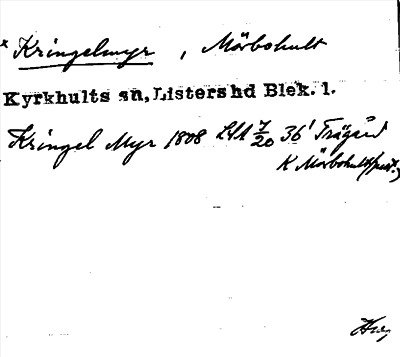 x Kringelmyr , Mörbohult
Kyrkhults sn, Listers hd Blek. l.
Kringel Myr 1808 LSA 7/20 36' Trägård
K Mörbohult